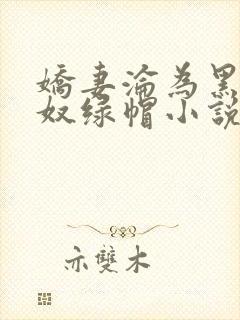 嬌妻淪為黑
奴绿帽小說
亦雙木